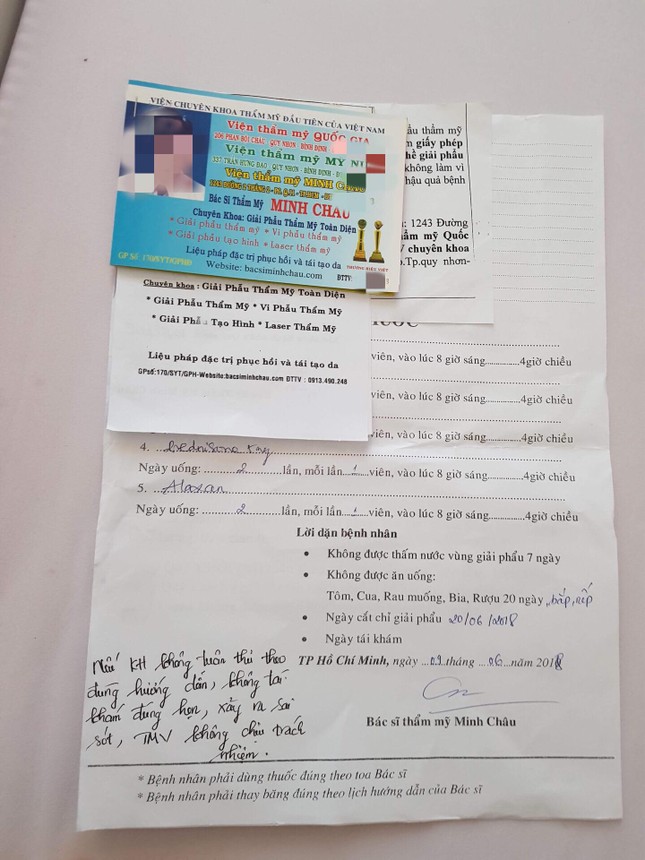 VIỆN CHUYÊN KHOA THẨM MỸ ĐẦU TIÊN CỦA VIỆT NAM
Viện thẩm mỹ QUỐC GIA
206 PHAN BỘI CHÂU - QUY NHƠN - BÌNH ĐỊNH
Viện thẩm mỹ MỸ
327 TRẦN HƯNG ĐẠO - QUY NHƠN - BÌNH ĐỊNH
Viện thẩm mỹ MINH CHÂU
1243 ĐƯỜNG 3 THÁNG 2
Bác Sĩ Thẩm Mỹ MINH CHÂU
Chuyên Khoa: Giải Phẫu Thẩm Mỹ Toàn Diện
* Giải phẫu thẩm mỹ * Vi phẫu thẩm mỹ
* Giải phẫu tạo hình * Laser thẩm mỹ
Liệu pháp đặc trị phục hồi và tái tạo da
GP Số 170/SYT/GPHĐ Website: bacsiminhchau.com ĐTTV:
THƯƠNG HIỆU VIỆT
ẩu thẩm mỹ
giấy phép
hề giải phẫu
không làm vì
hậu quả bệnh
: 1243 Đường
ẩm mỹ Quốc
V chuyên khoa
.Tp.quy nhơn-
Chuyên khoa : Giải Phẫu Thẩm Mỹ Toàn Diện
* Giải Phẫu Thẩm Mỹ * Vi Phẫu Thẩm Mỹ
* Giải Phẫu Tạo Hình * Laser Thẩm Mỹ
Liệu pháp đặc trị phục hồi và tái tạo da
GPsố:170/SYT/GPH-Website:bacsiminhchau.com ĐTTV : 0913.490.246
HUỐC
viên, vào lúc 8 giờ sáng............4giờ chiều
viên, vào lúc 8 giờ sáng............4giờ chiều
viên, vào lúc 8 giờ sáng............4giờ chiều
4.
Ngày uống: ......2......lần, mỗi lần...1...viên, vào lúc 8 giờ sáng............4giờ chiều
5. Alaxan
Ngày uống: ......2......lần, mỗi lần...1...viên, vào lúc 8 giờ sáng............4giờ chiều
Lời dặn bệnh nhân
• Không được thấm nước vùng giải phẩu 7 ngày
• Không được ăn uống:
Tôm, Cua, Rau muống, Bia, Rượu 20 ngày, bắp, nếp
• Ngày cắt chỉ giải phẩu 20/06/2018
• Ngày tái khám
TP Hồ Chí Minh, ngày ..09..tháng ...06...năm 2018
Nếu KH không tuân thủ theo
đúng hướng dẫn, không tái
khám đúng hẹn, xảy ra sai
sót, TMV không chịu trách
nhiệm.
Bác sĩ thẩm mỹ Minh Châu
* Bệnh nhân phải dùng thuốc đúng theo toa Bác sĩ
* Bệnh nhân phải thay băng đúng theo lịch hướng dẫn của Bác sĩ